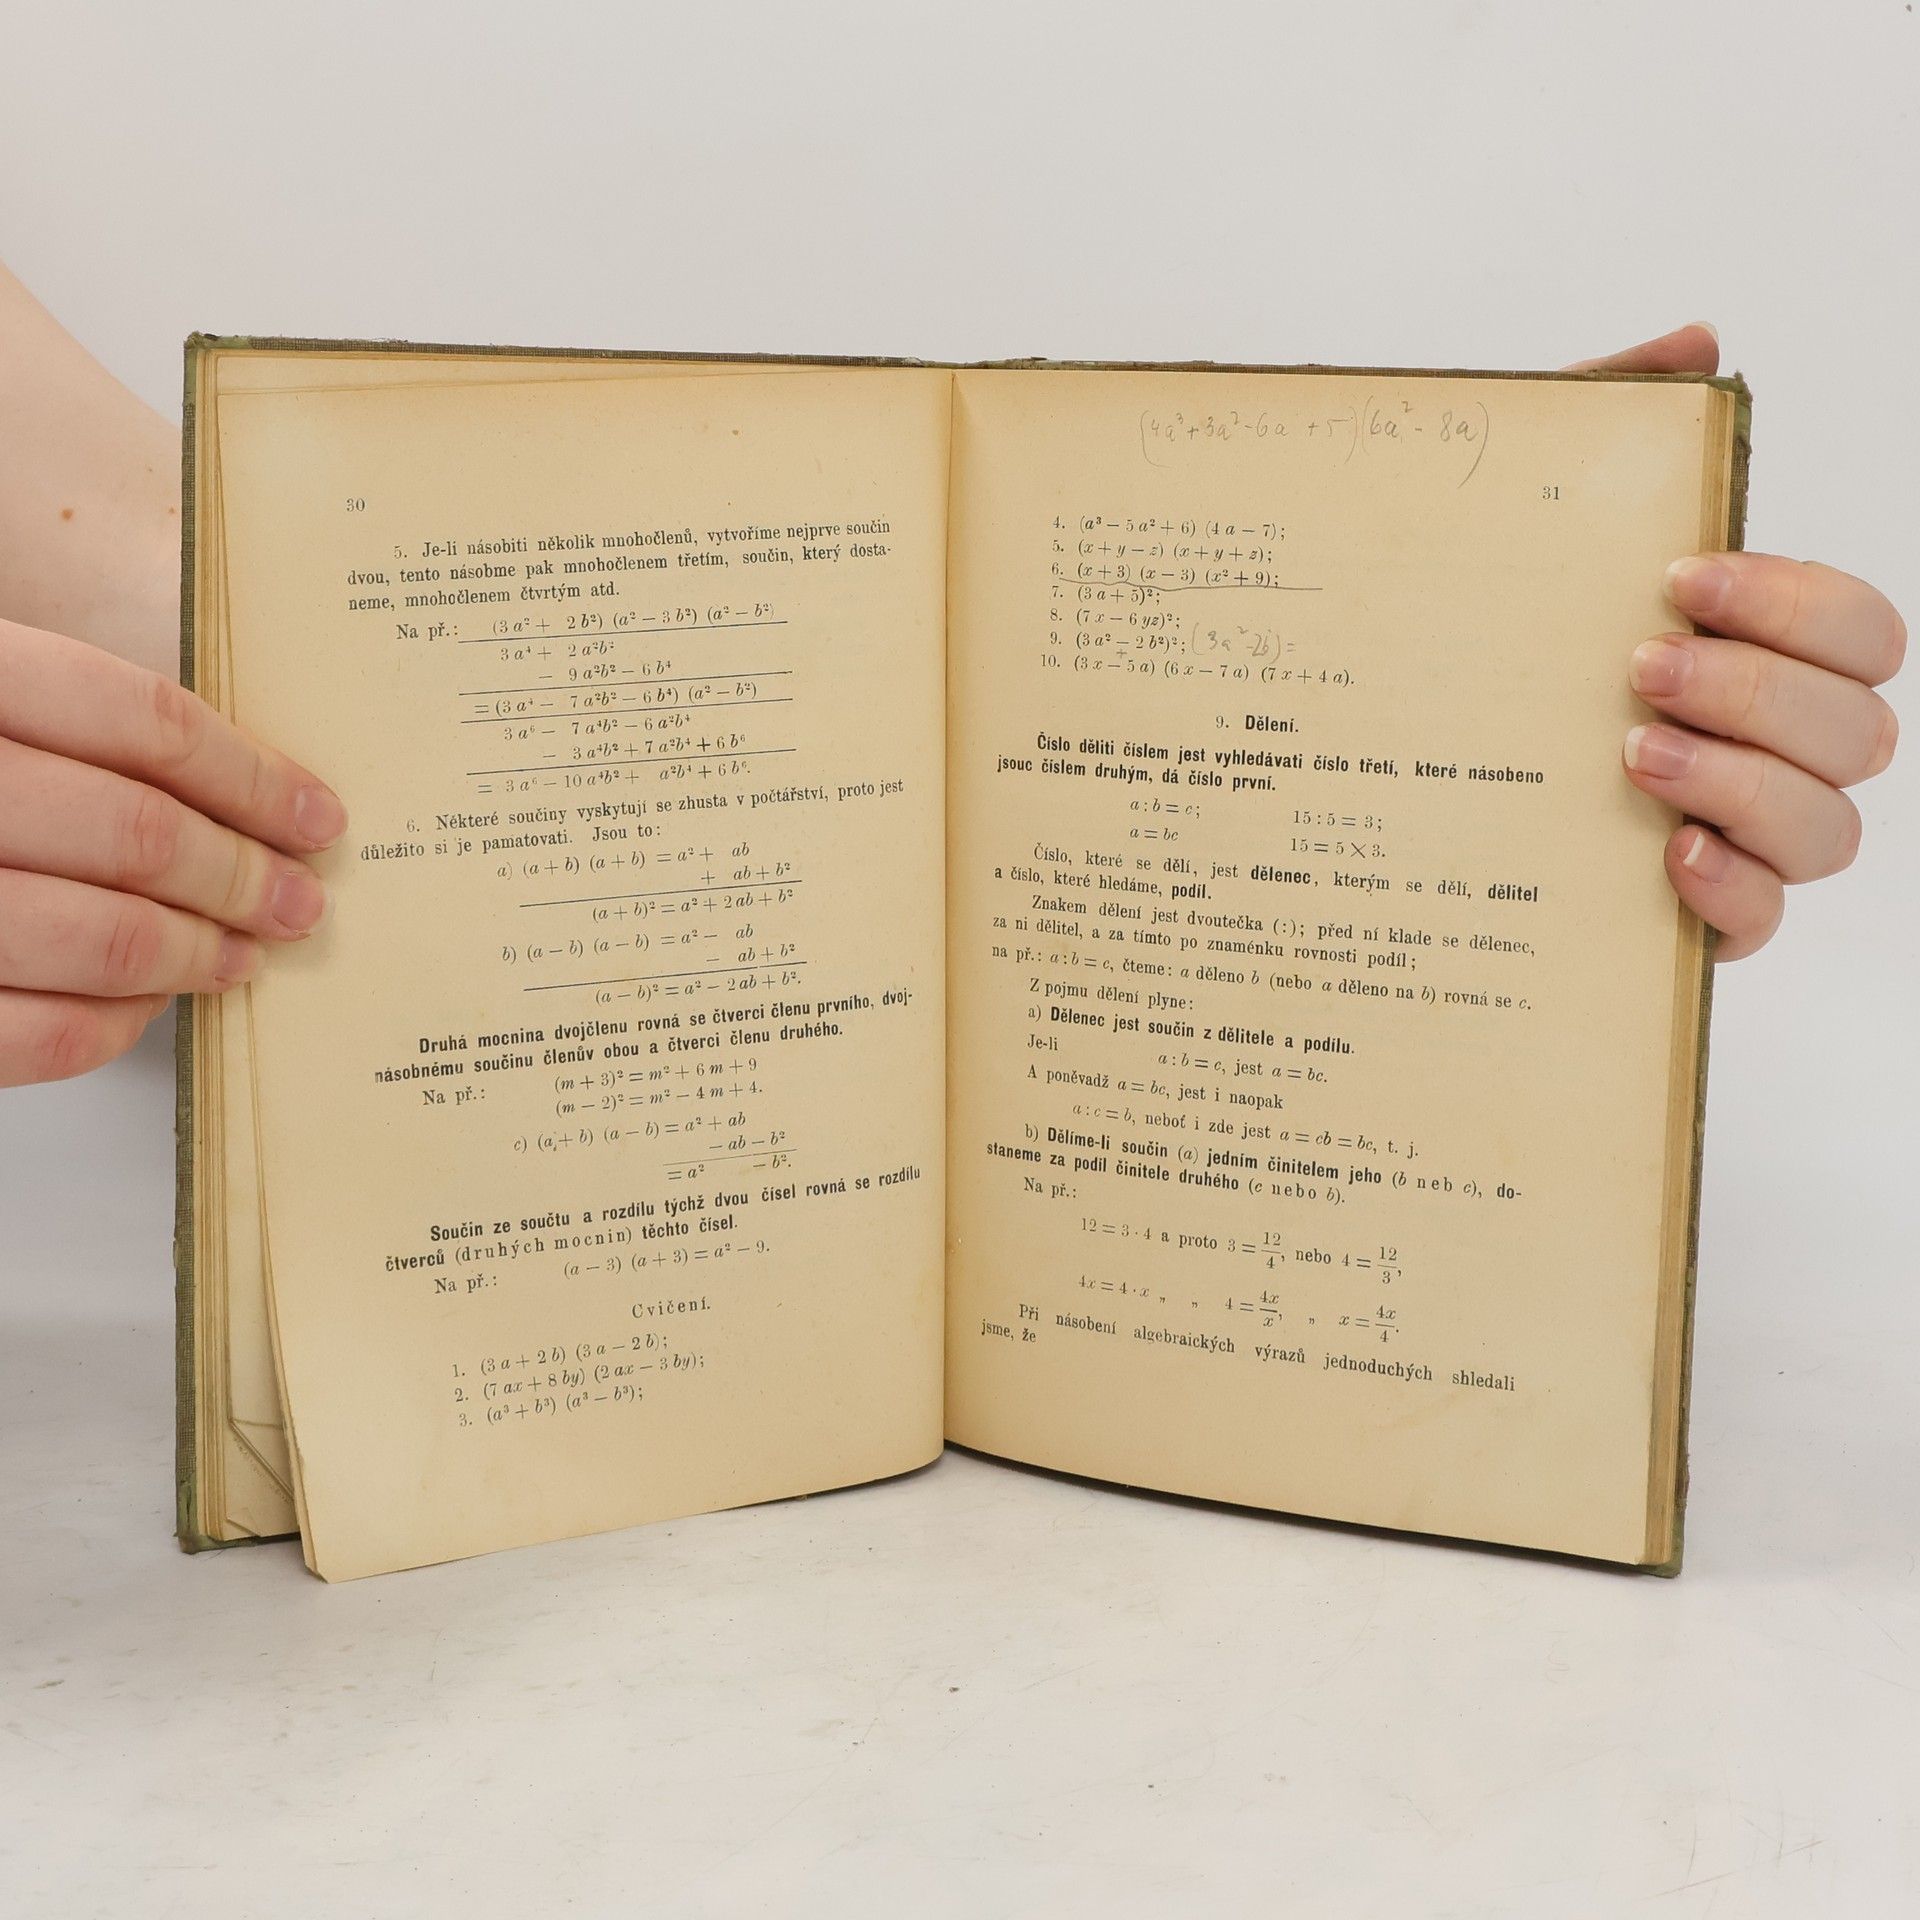 30
5. Je-li násobiti několik mnohočlenů, vytvoříme nejprve součin
dvou, tento násobme pak mnohočlenem třetím, součin, který dosta-
neme, mnohočlenem čtvrtým atd.
Na př.: (3 a² + 2 b²) (a² — 3 b²) (a² — b²)
3 a⁴ + 2 a²b²
— 9 a²b² — 6 b⁴
= (3 a⁴ — 7 a²b² — 6 b⁴) (a² — b²)
3 a⁶ — 7 a⁴b² — 6 a²b⁴
— 3 a⁴b² + 7 a²b⁴ + 6 b⁶
= 3 a⁶ — 10 a⁴b² + a²b⁴ + 6 b⁶.
6. Některé součiny vyskytují se zhusta v počtářství, proto jest
důležito si je pamatovati. Jsou to:
a) (a + b) (a + b) = a² + ab
+ ab + b²
(a + b)² = a² + 2 ab + b²
b) (a — b) (a — b) = a² — ab
— ab + b²
(a — b)² = a² — 2 ab + b².
Druhá mocnina dvojčlenu rovná se čtverci členu prvního, dvoj-
násobnému součinu členův obou a čtverci členu druhého.
Na př.: (m + 3)² = m² + 6 m + 9
(m — 2)² = m² — 4 m + 4.
c) (a + b) (a — b) = a² + ab
— ab — b²
= a² — b².
Součin ze součtu a rozdílu týchž dvou čísel rovná se rozdílu
čtverců (druhých mocnin) těchto čísel.
Na př.: (a — 3) (a + 3) = a² — 9.
Cvičení.
1. (3 a + 2 b) (3 a — 2 b);
2. (7 ax + 8 by) (2 ax — 3 by);
3. (a³ + b³) (a³ — b³);
(4a³ + 3a² - 6a + 5)(6a² - 8a)
31
4. (a³ — 5 a² + 6) (4 a — 7);
5. (x + y — z) (x + y + z);
6. (x + 3) (x — 3) (x² + 9);
7. (3 a + 5)²;
8. (7 x — 6 yz)²;
9. (3 a² — 2 b²)²; (3a² - 2b) =
10. (3 x — 5 a) (6 x — 7 a) (7 x + 4 a).
9. Dělení.
Číslo děliti číslem jest vyhledávati číslo třetí, které násobeno
jsouc číslem druhým, dá číslo první.
a : b = c; 15 : 5 = 3;
a = bc 15 = 5 × 3.
Číslo, které se dělí, jest dělenec, kterým se dělí, dělitel
a číslo, které hledáme, podíl.
Znakem dělení jest dvoutečka (:); před ní klade se dělenec,
za ni dělitel, a za tímto po znaménku rovnosti podíl;
na př.: a : b = c, čteme: a děleno b (nebo a děleno na b) rovná se c.
Z pojmu dělení plyne:
a) Dělenec jest součin z dělitele a podílu.
Je-li a : b = c, jest a = bc.
A poněvadž a = bc, jest i naopak
a : c = b, neboť i zde jest a = cb = bc, t. j.
b) Dělíme-li součin (a) jedním činitelem jeho (b neb c), do-
staneme za podíl činitele druhého (c nebo b).
Na př.:
12 = 3 · 4 a proto 3 = 12/4, nebo 4 = 12/3,
4x = 4 · x „ „ 4 = 4x/x, „ x = 4x/4.
Při násobení algebraických výrazů jednoduchých shledali
jsme, že